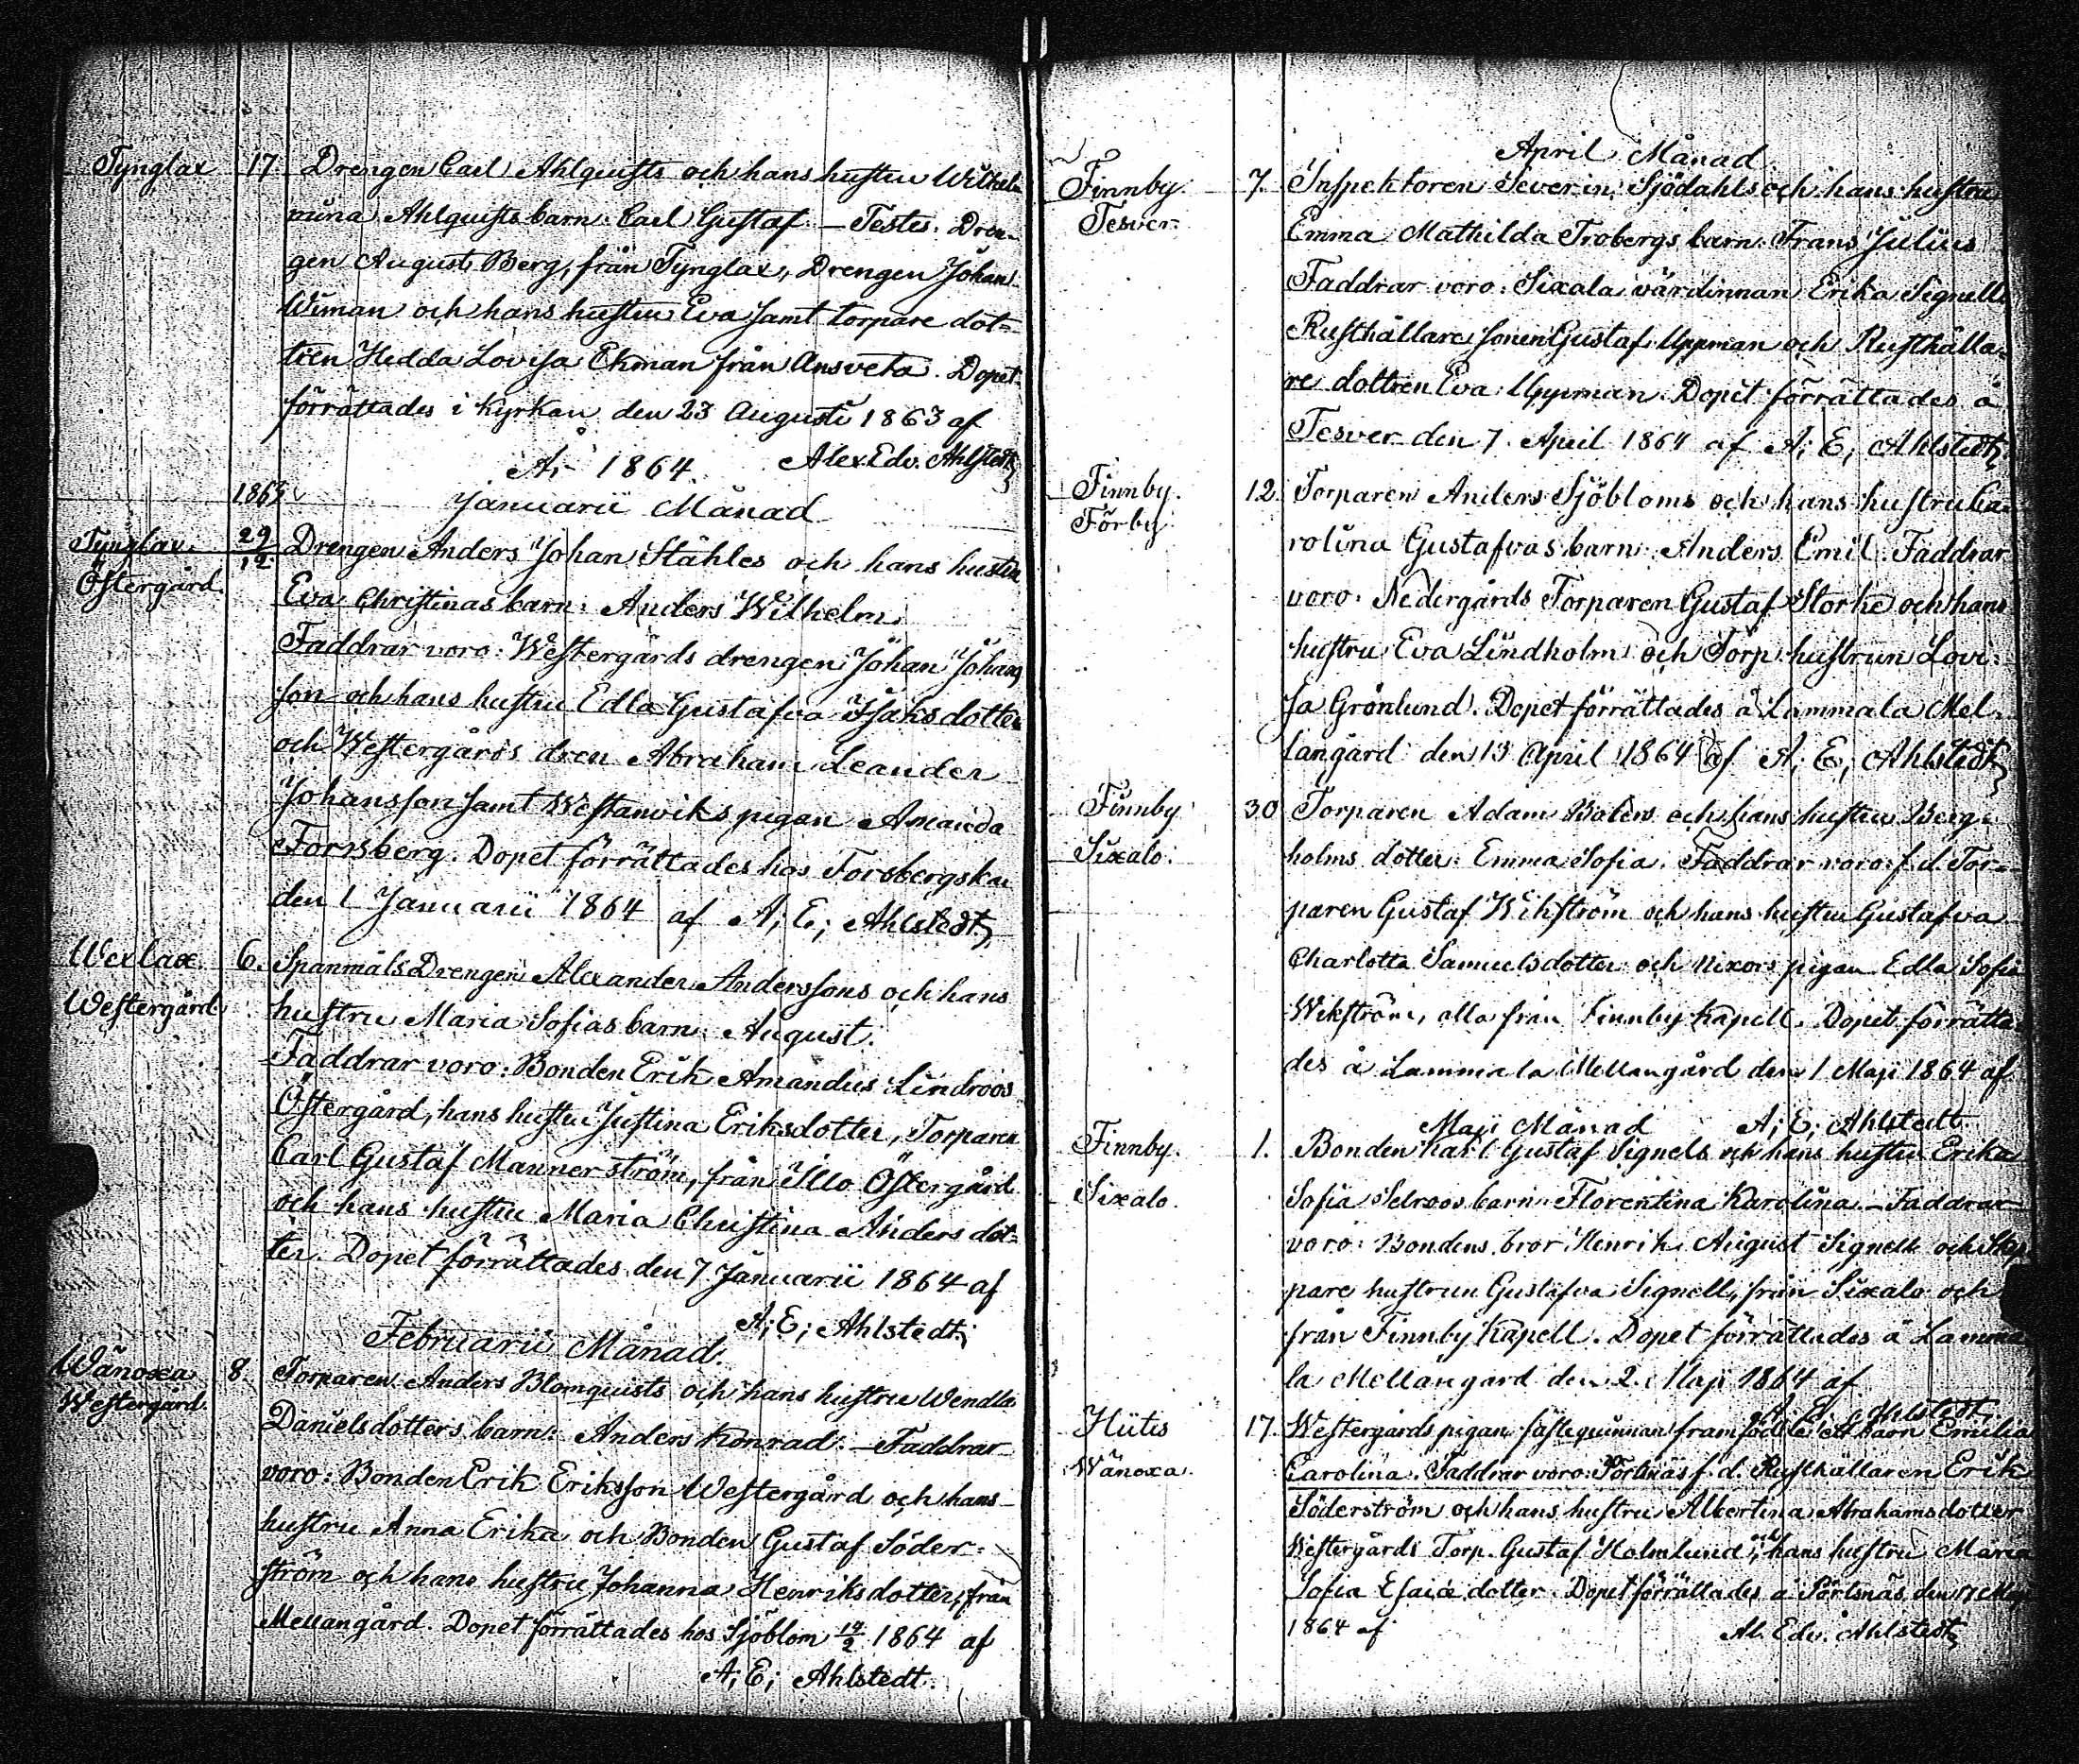 Tynglax 17. Drengen Carl Ahlquists och hans hustru Wilhel-
mina Ahlquists barn: Carl Gustaf. — Testes: Dren-
gen August Berg, från Tynglax, Drengen Johan
Wiman och hans hustru Eva samt torpare dot-
tren Hedda Lovisa Ekman från Ansveta. Dopet
förrättades i kyrkan den 23 Augusti 1863 af
Alex. Edv. Ahlstedt
A; 1864.
1863 Januarii Månad
Tynglax. 29/12 Drengen Anders Johan Ståhles och hans hustru
Östergård. Eva Christinas barn: Anders Wilhelm
Faddrar voro: Westergårds drengen Johan Johans
son och hans hustru Edla Gustafva Isaksdotter
och Westergårds dren Abraham Leander
Johansson samt Westanviks pigan Amanda
Forssberg. Dopet förrättades hos Forsbergskan
den 1 Januarii 1864 af A; E; Ahlstedt
Wexlax 6. Spanmåls Drengen Alexander Anderssons och hans
Westergård hustru Maria Sofias barn: August.
Faddrar voro: Bonden Erik Amandus Lindroos
Östergård, hans hustru Justina Eriksdotter, Torparen
Carl Gustaf Mannerström, från Illo Östergård
och hans hustru Maria Christina Andersdot-
ter. Dopet förrättades den 7 Januarii 1864 af
A; E; Ahlstedt;
Februarii Månad.
Wänoxa 8. Torparen Anders Blomquists och hans hustru Wendla
Westergård. Danielsdotters barn: Anders Konrad. — Faddrar
voro: Bonden Erik Eriksson Westergård och hans
hustru Anna Erika och Bonden Gustaf Söder-
ström och hans hustru Johanna Henriksdotter, från
Mellangård. Dopet förrättades hos Sjöblom 1864 af
A; E; Ahlstedt.
April Månad
Finnby. 7. Inspektoren Severin Sjödahls och hans hustru
Tesver. Emma Mathilda Trobergs barn: Frans Julius
Faddrar voro: Sixala värdinnan Erika Signell
Rusthållare sonen Gustaf Uppman och Rusthålla-
re dottren Eva Uppman. Dopet förrättades å
Tesver den 7 April 1864 af A; E; Ahlstedt
Finnby. 12. Torparen Anders Sjöbloms och hans hustru Ca-
Förby rolina Gustafvas barn: Anders Emil. Faddrar
voro: Nedergårds Torparen Gustaf Storke och hans
hustru Eva Lindholm och Torp. hustrun Lovi-
sa Grönlund. Dopet förrättades å Lammala Mel-
langård den 13 April 1864 af A; E; Ahlstedt
Finnby 30 Torparen Adam och hans hustru Berg-
Sixalo. holms dotter: Emma Sofia. Faddrar voro: f. d. Tor-
paren Gustaf Wikström och hans hustru Gustafva
Charlotta Samuelsdotter och Nixors pigan Edla Sofia
Wikström, alla från Finnby Kapell. Dopet förrätta-
des å Lammala Mellangård den 1 Maji 1864 af
Maji Månad A; E; Ahlstedt.
Finnby. 1. Bonden Karl Gustaf Signels och hans hustru Erika
Sixalo. Sofia Selroos barn: Florentina Karolina. — Faddrar
voro: Bondens bror Henrik August Signell och Skep-
pare hustrun Gustafva Signell, från Sixalo och
från Finnby Kapell. Dopet förrättades å Lamma
la Mellangård den 2. Maji 1864 af
A. E. Ahlstedt,
Hitis 17. Westergårds pigan fästequinnan framfödde ett barn Emilia
Wänoxa. Carolina. Faddrar voro: Pörtsnäs f. d. Rusthållaren Erik
Söderström och hans hustru Albertina Abrahamsdotter
Westergårds Torp. Gustaf Holmlund, och hans hustru Maria
Sofia Esaiæ dotter. Dopet förrättades å Pörtsnäs den 17 Maji
1864 af Al. Edv. Ahlstedt